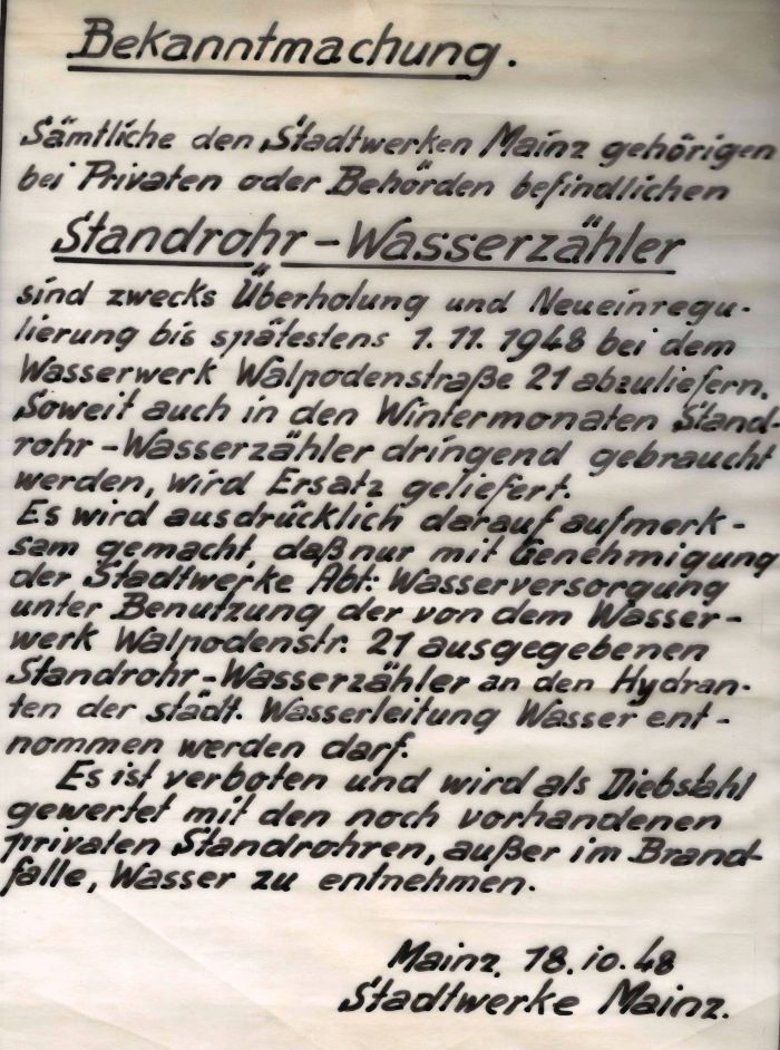 Bekanntmachung.
Sämtliche den Stadtwerken Mainz gehörigen
bei Privaten oder Behörden befindlichen
Standrohr-Wasserzähler
sind zwecks Überholung und Neueinregu-
lierung bis spätestens 1.11.1948 bei dem
Wasserwerk Walpodenstraße 21 abzuliefern.
Soweit auch in den Wintermonaten Stand-
rohr-Wasserzähler dringend gebraucht
werden, wird Ersatz geliefert.
Es wird ausdrücklich darauf aufmerk-
sam gemacht, daß nur mit Genehmigung
der Stadtwerke Abt: Wasserversorgung
unter Benutzung der von dem Wasser-
werk Walpodenstr. 21 ausgegebenen
Standrohr-Wasserzähler an den Hydran-
ten der städt. Wasserleitung Wasser ent-
nommen werden darf.
Es ist verboten und wird als Diebstahl
gewertet mit den noch vorhandenen
privaten Standrohren, außer im Brand-
falle, Wasser zu entnehmen.
Mainz, 18.10.48
Stadtwerke Mainz.